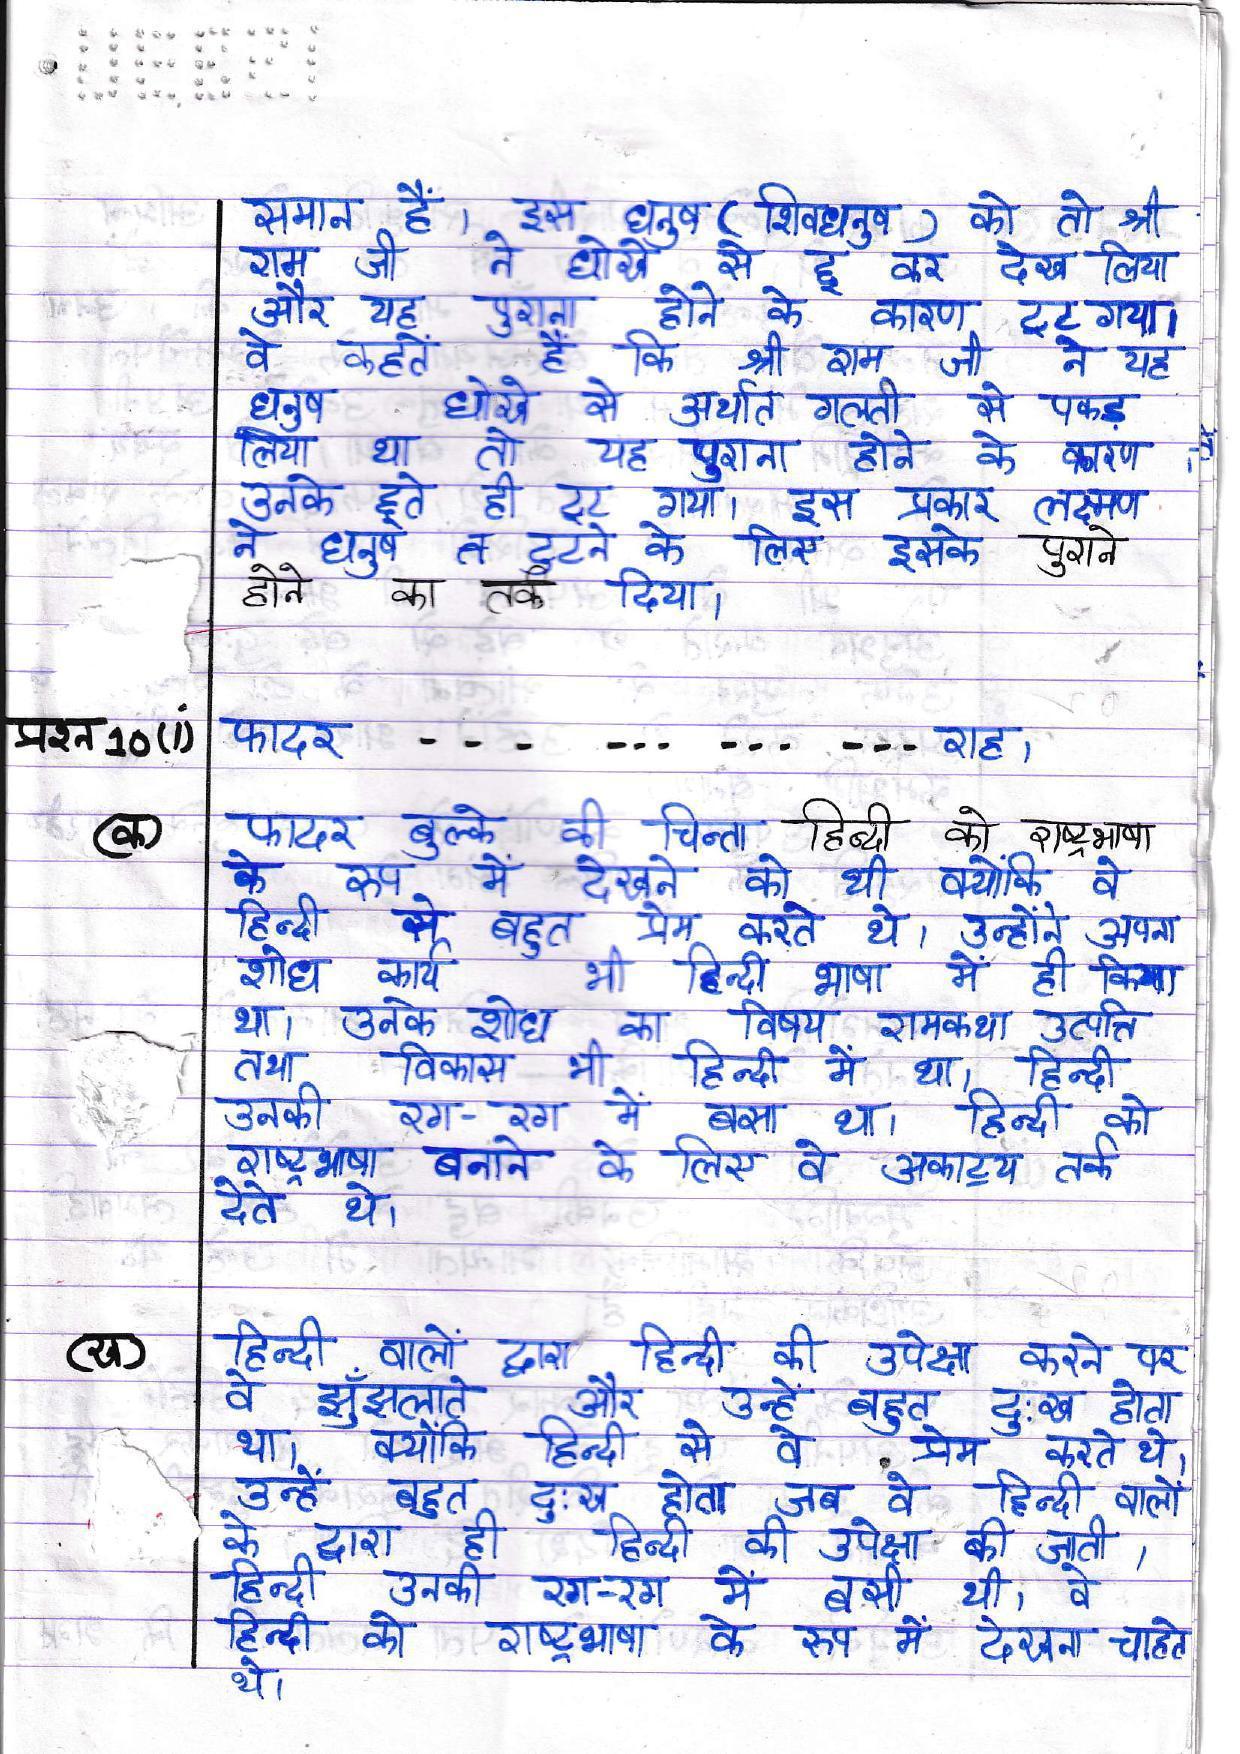 समान हैं। इस धनुष (शिवधनुष) को तो श्री
राम जी ने धोखे से छू कर देख लिया
और यह पुराना होने के कारण टूट गया।
वे कहतें हैं कि श्री राम जी ने यह
धनुष धोखे से अर्थात गलती से पकड़
लिया था तो यह पुराना होने के कारण
उनके छूते ही टूट गया। इस प्रकार लक्ष्मण
ने धनुष टूटने के लिए इसके पुराने
होने का तर्क दिया।
प्रश्न 10(i) फादर - - - --- --- --- राह।
(क) फादर बुल्के की चिन्ता हिन्दी को राष्ट्रभाषा
के रूप में देखने को थी क्योंकि वे
हिन्दी से बहुत प्रेम करते थे। उन्होंने अपना
शोध कार्य भी हिन्दी भाषा में ही किया
था। उनके शोध का विषय रामकथा उत्पत्ति
तथा विकास भी हिन्दी में था। हिन्दी
उनकी रग-रग में बसा था। हिन्दी को
राष्ट्रभाषा बनाने के लिए वे अकाट्य तर्क
देते थे।
(ख) हिन्दी वालों द्वारा हिन्दी की उपेक्षा करने पर
वे झुँझलाते और उन्हें बहुत दुःख होता
था। क्योंकि हिन्दी से वे प्रेम करते थे।
उन्हें बहुत दुःख होता जब वे हिन्दी वालों
के द्वारा ही हिन्दी की उपेक्षा की जाती।
हिन्दी उनकी रग-रग में बसी थी। वे
हिन्दी को राष्ट्रभाषा के रूप में देखना चाहते
थे।